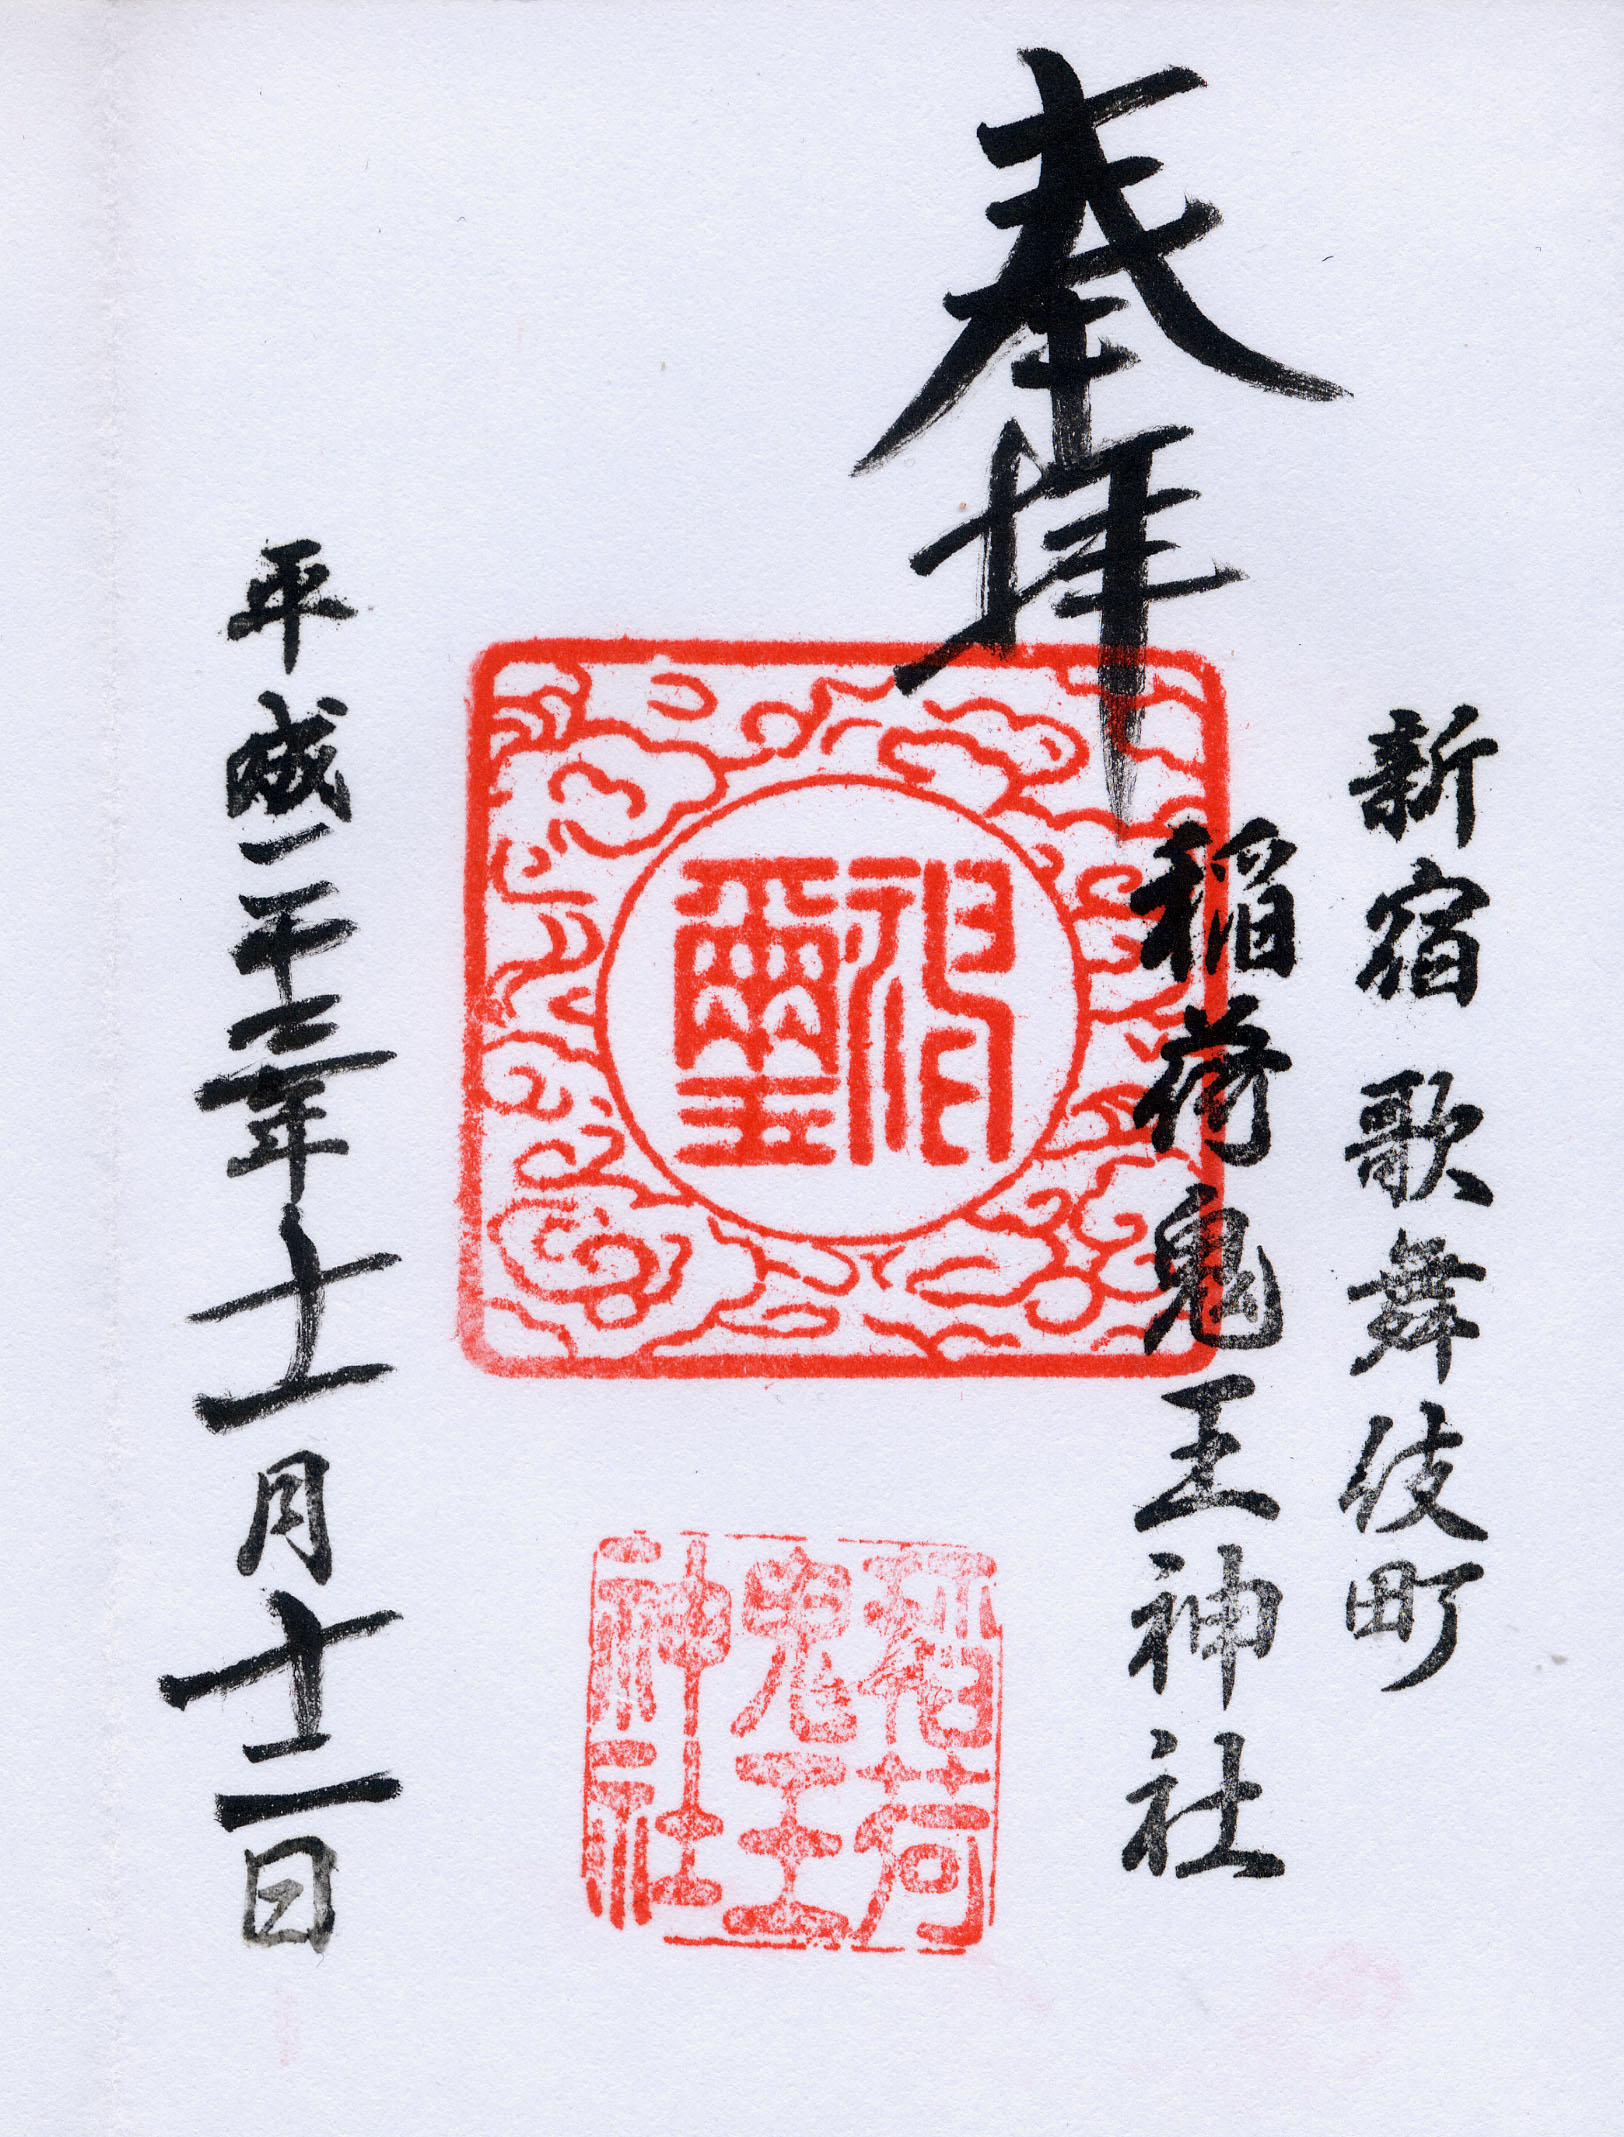 奉拝
新宿歌舞伎町
稲荷鬼王神社
神璽
稲荷
鬼王
神社
平成二十三年十一月十二日